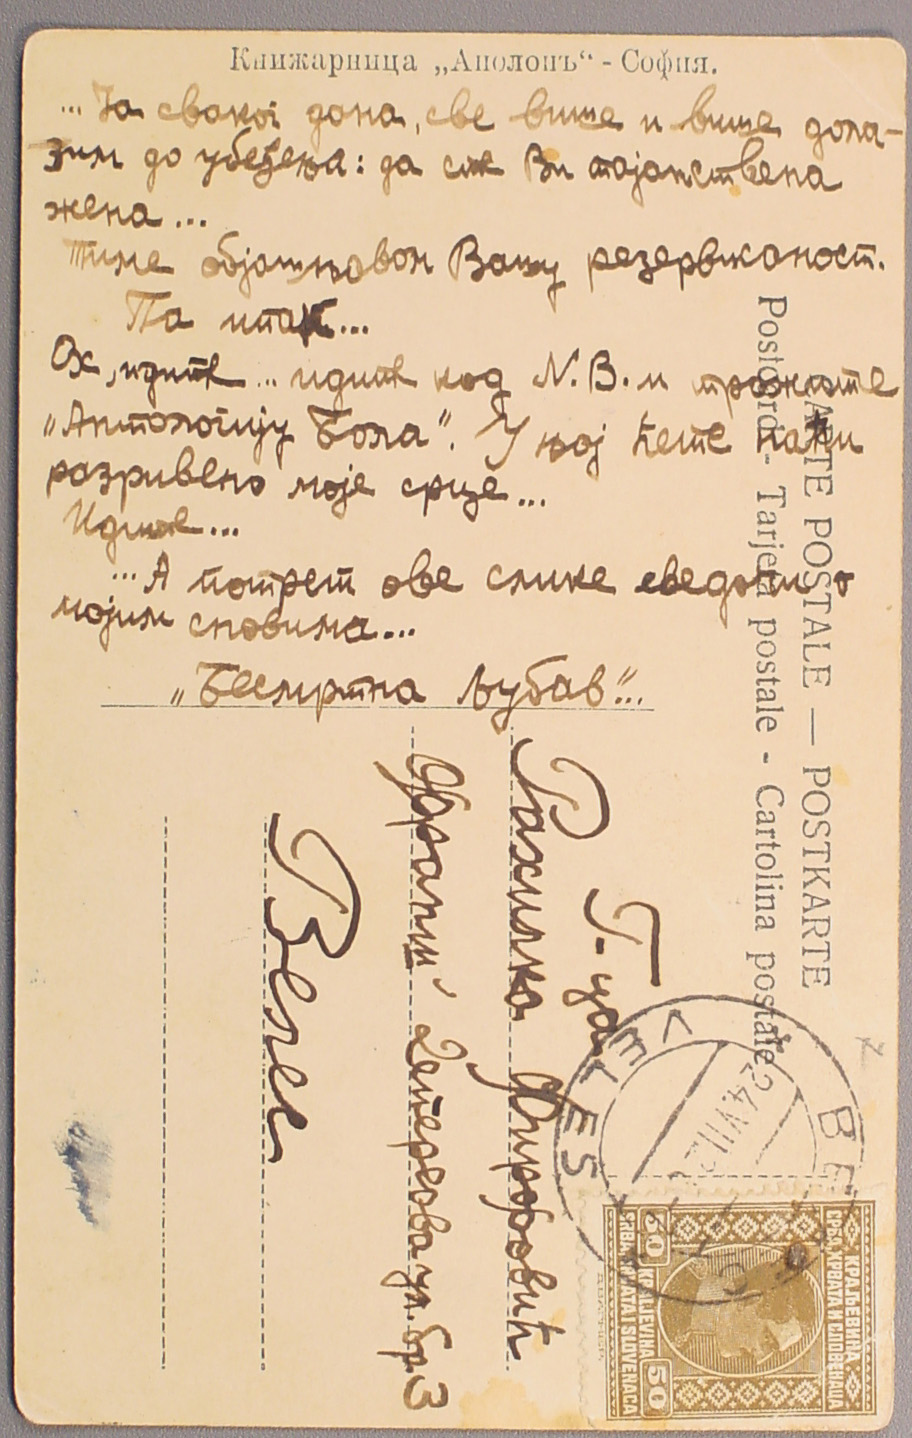 Книжарница „Аполонъ“ - София.
... За сваког дана, све више и више дола-
зим до убеђења: да сте Ви тајанствена
жена...
Тиме објашњавам Вашу резервисаност.
Па ипак...
Ох, идите... идите код N. В. и тражите
„Антологију Бола“. У њој ћете наћи
разривено моје срце...
Идите...
... А потрет ове слике сведочи о
мојим сновима...
„Бесмртна љубав“...
CARTE POSTALE — POSTKARTE
Postcard - Tarjeta postale - Cartolina postale
Г-ца
Рахилка
Франш д'Епереова ул. бр. 3
Велес
VELES
24.VII.
КРАЉЕВИНА
СРБА ХРВАТА И СЛОВЕНАЦА
50 KRALJEVINA 50
SRBA HRVATA I SLOVENACA